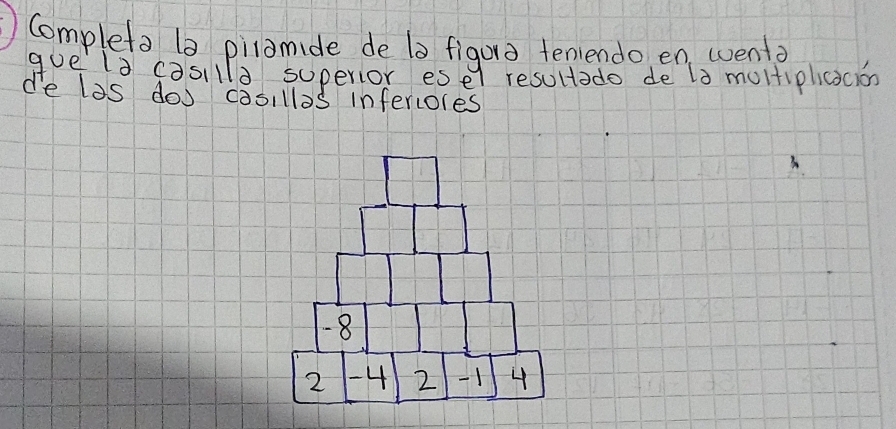 Completa la pirámide de la figura teniendo en cuenta
que la casilla superior es el resultado de la multiplicación
de las dos casillas inferiores
-8
2 -4 2 -1 4